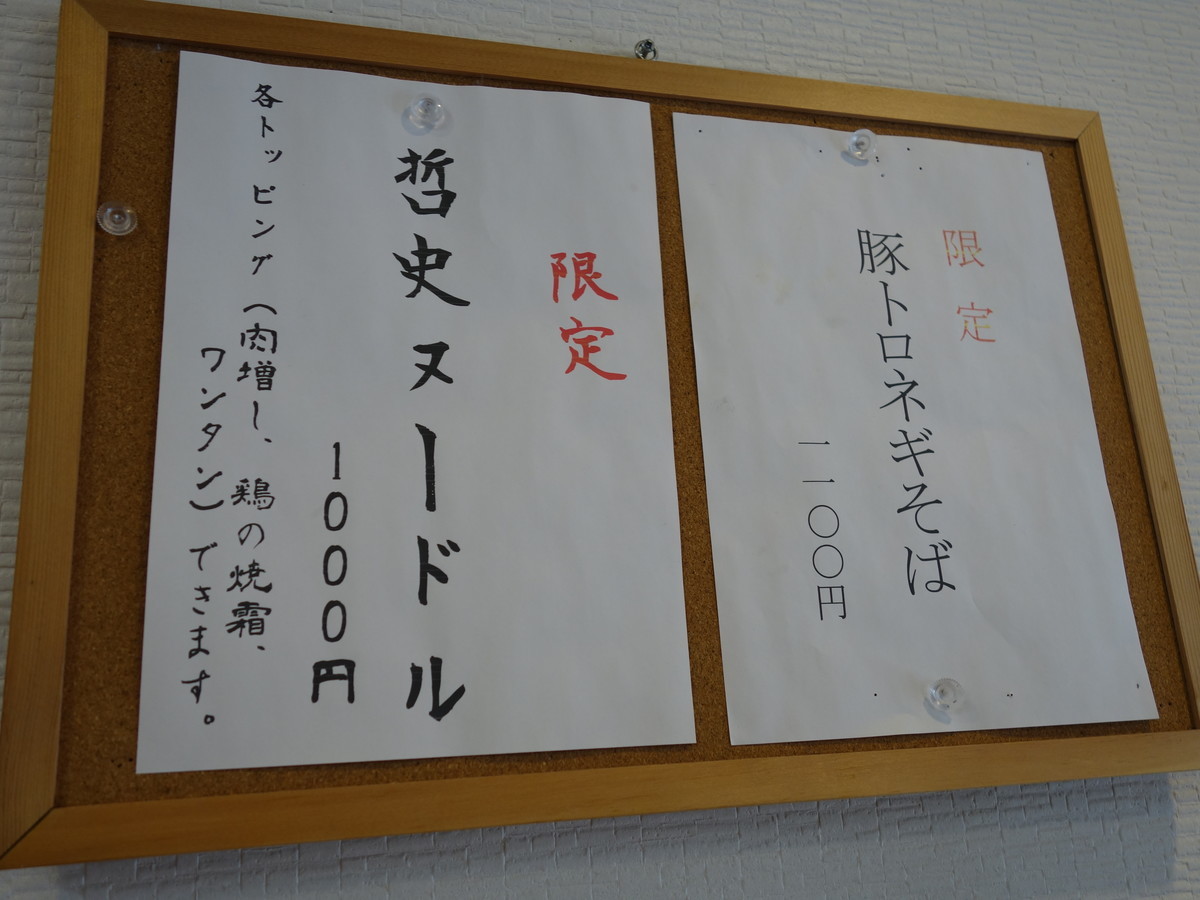 限定
豚トロネギそば
一一〇〇円
限定
哲史ヌードル
1000円
各トッピング(肉増し、鶏の焼霜、
ワンタン)できます。